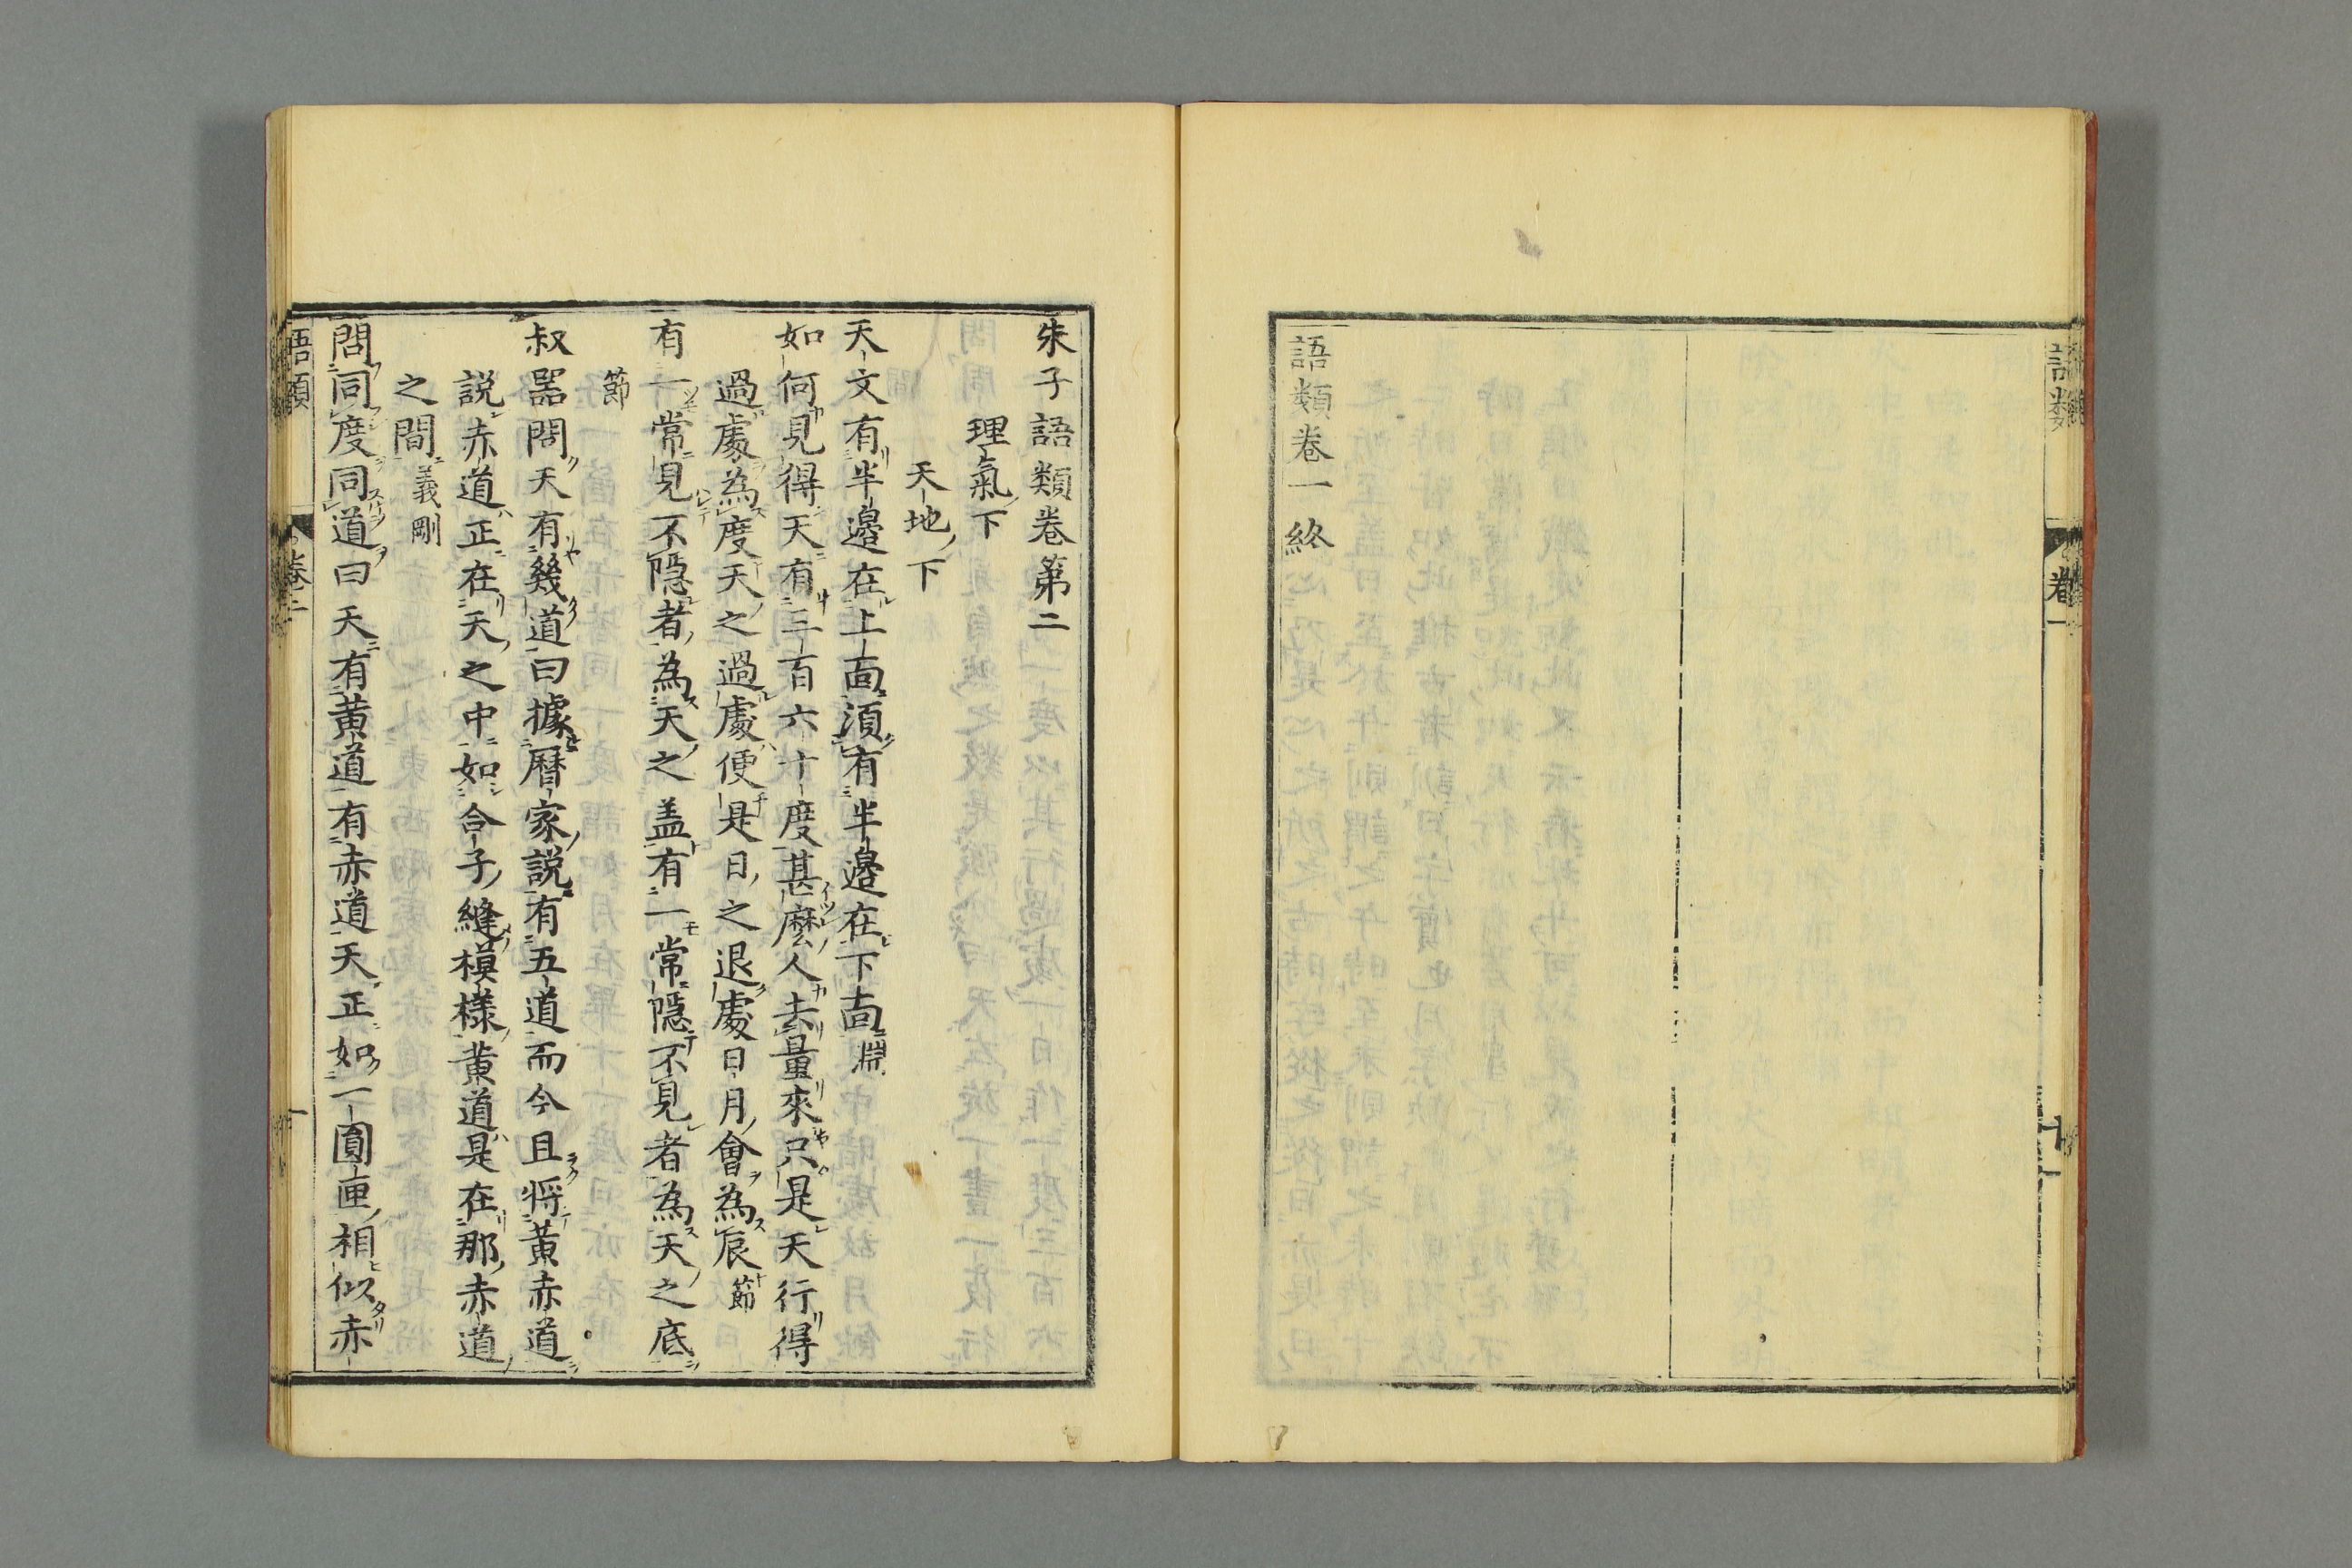 語類
卷一
十一
語類卷一終
朱子語類卷第二
理氣下
天地下
天文有半邊在上面須有半邊在下面淵
如何見得天有三百六十度甚麼人去量來只是天行得
過處為度天之過處便是日之退處日月會為辰節
有一常見不隱者為天之盖有一常隱不見者為天之底
節
叔器問天有幾道曰據曆家説有五道而今且將黃赤道
説赤道正在天之中如合子縫模樣黃道是在那赤道
之間義剛
問同度同道曰天有黃道有赤道天正如一圓匣相似赤
語類
卷二
一